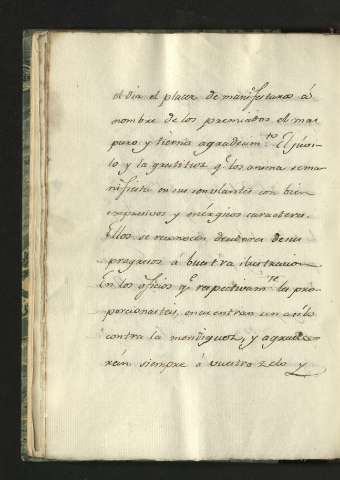 el dia el placer de manifestaros á
nombre de los premiados el mas
puro y tierno agradecim.to El júvi-
lo y la gratitud q.e los anima se ma-
nifiesta en sus semblantes con bien
expresivos y enérgicos caracteres.
Ellos se reconocen deudores de sus
progresos á vuestra ilustracion
En los oficios q.e respectivam.te les pro-
porcionasteis, encuentran un asilo
contra la mendiguez, y agrade-
cerán siempre á vuestro zelo y